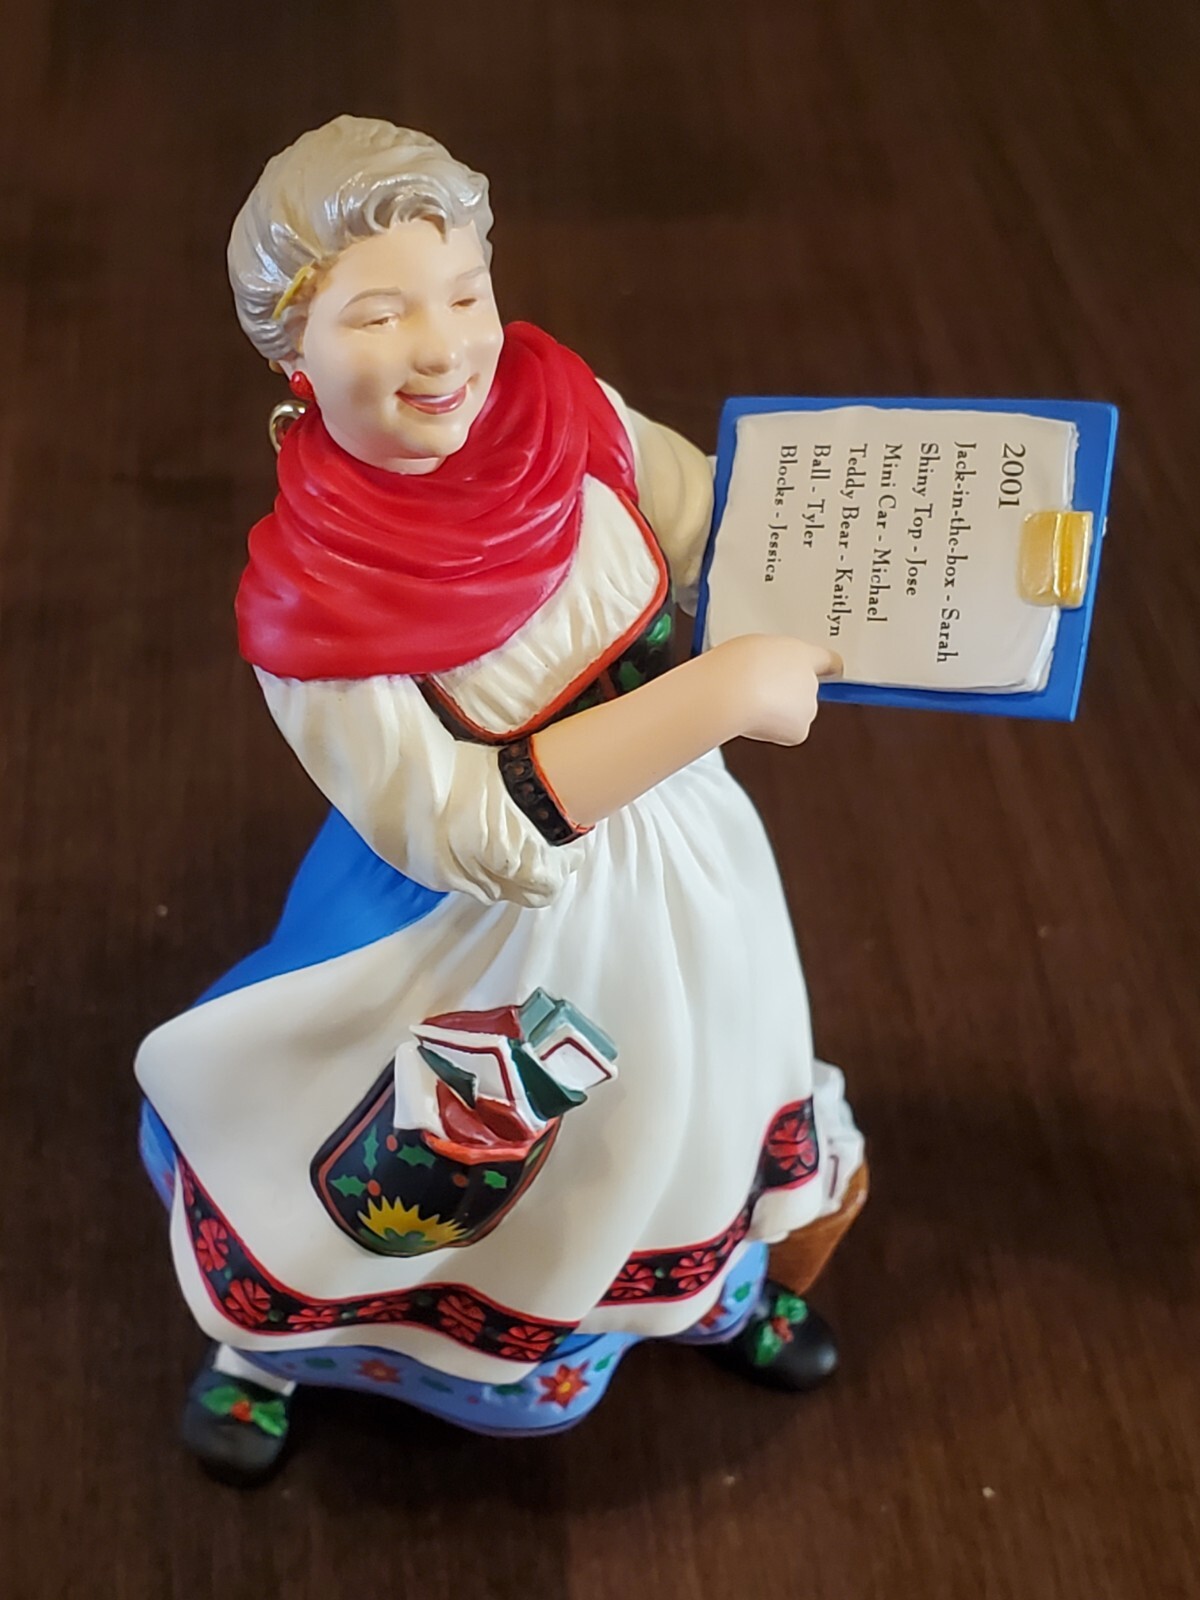 2001
Jack-in-the-box - Sarah
Shiny Top - Jose
Mini Car - Michael
Teddy Bear - Kaitlyn
Ball - Tyler
Blocks - Jessica